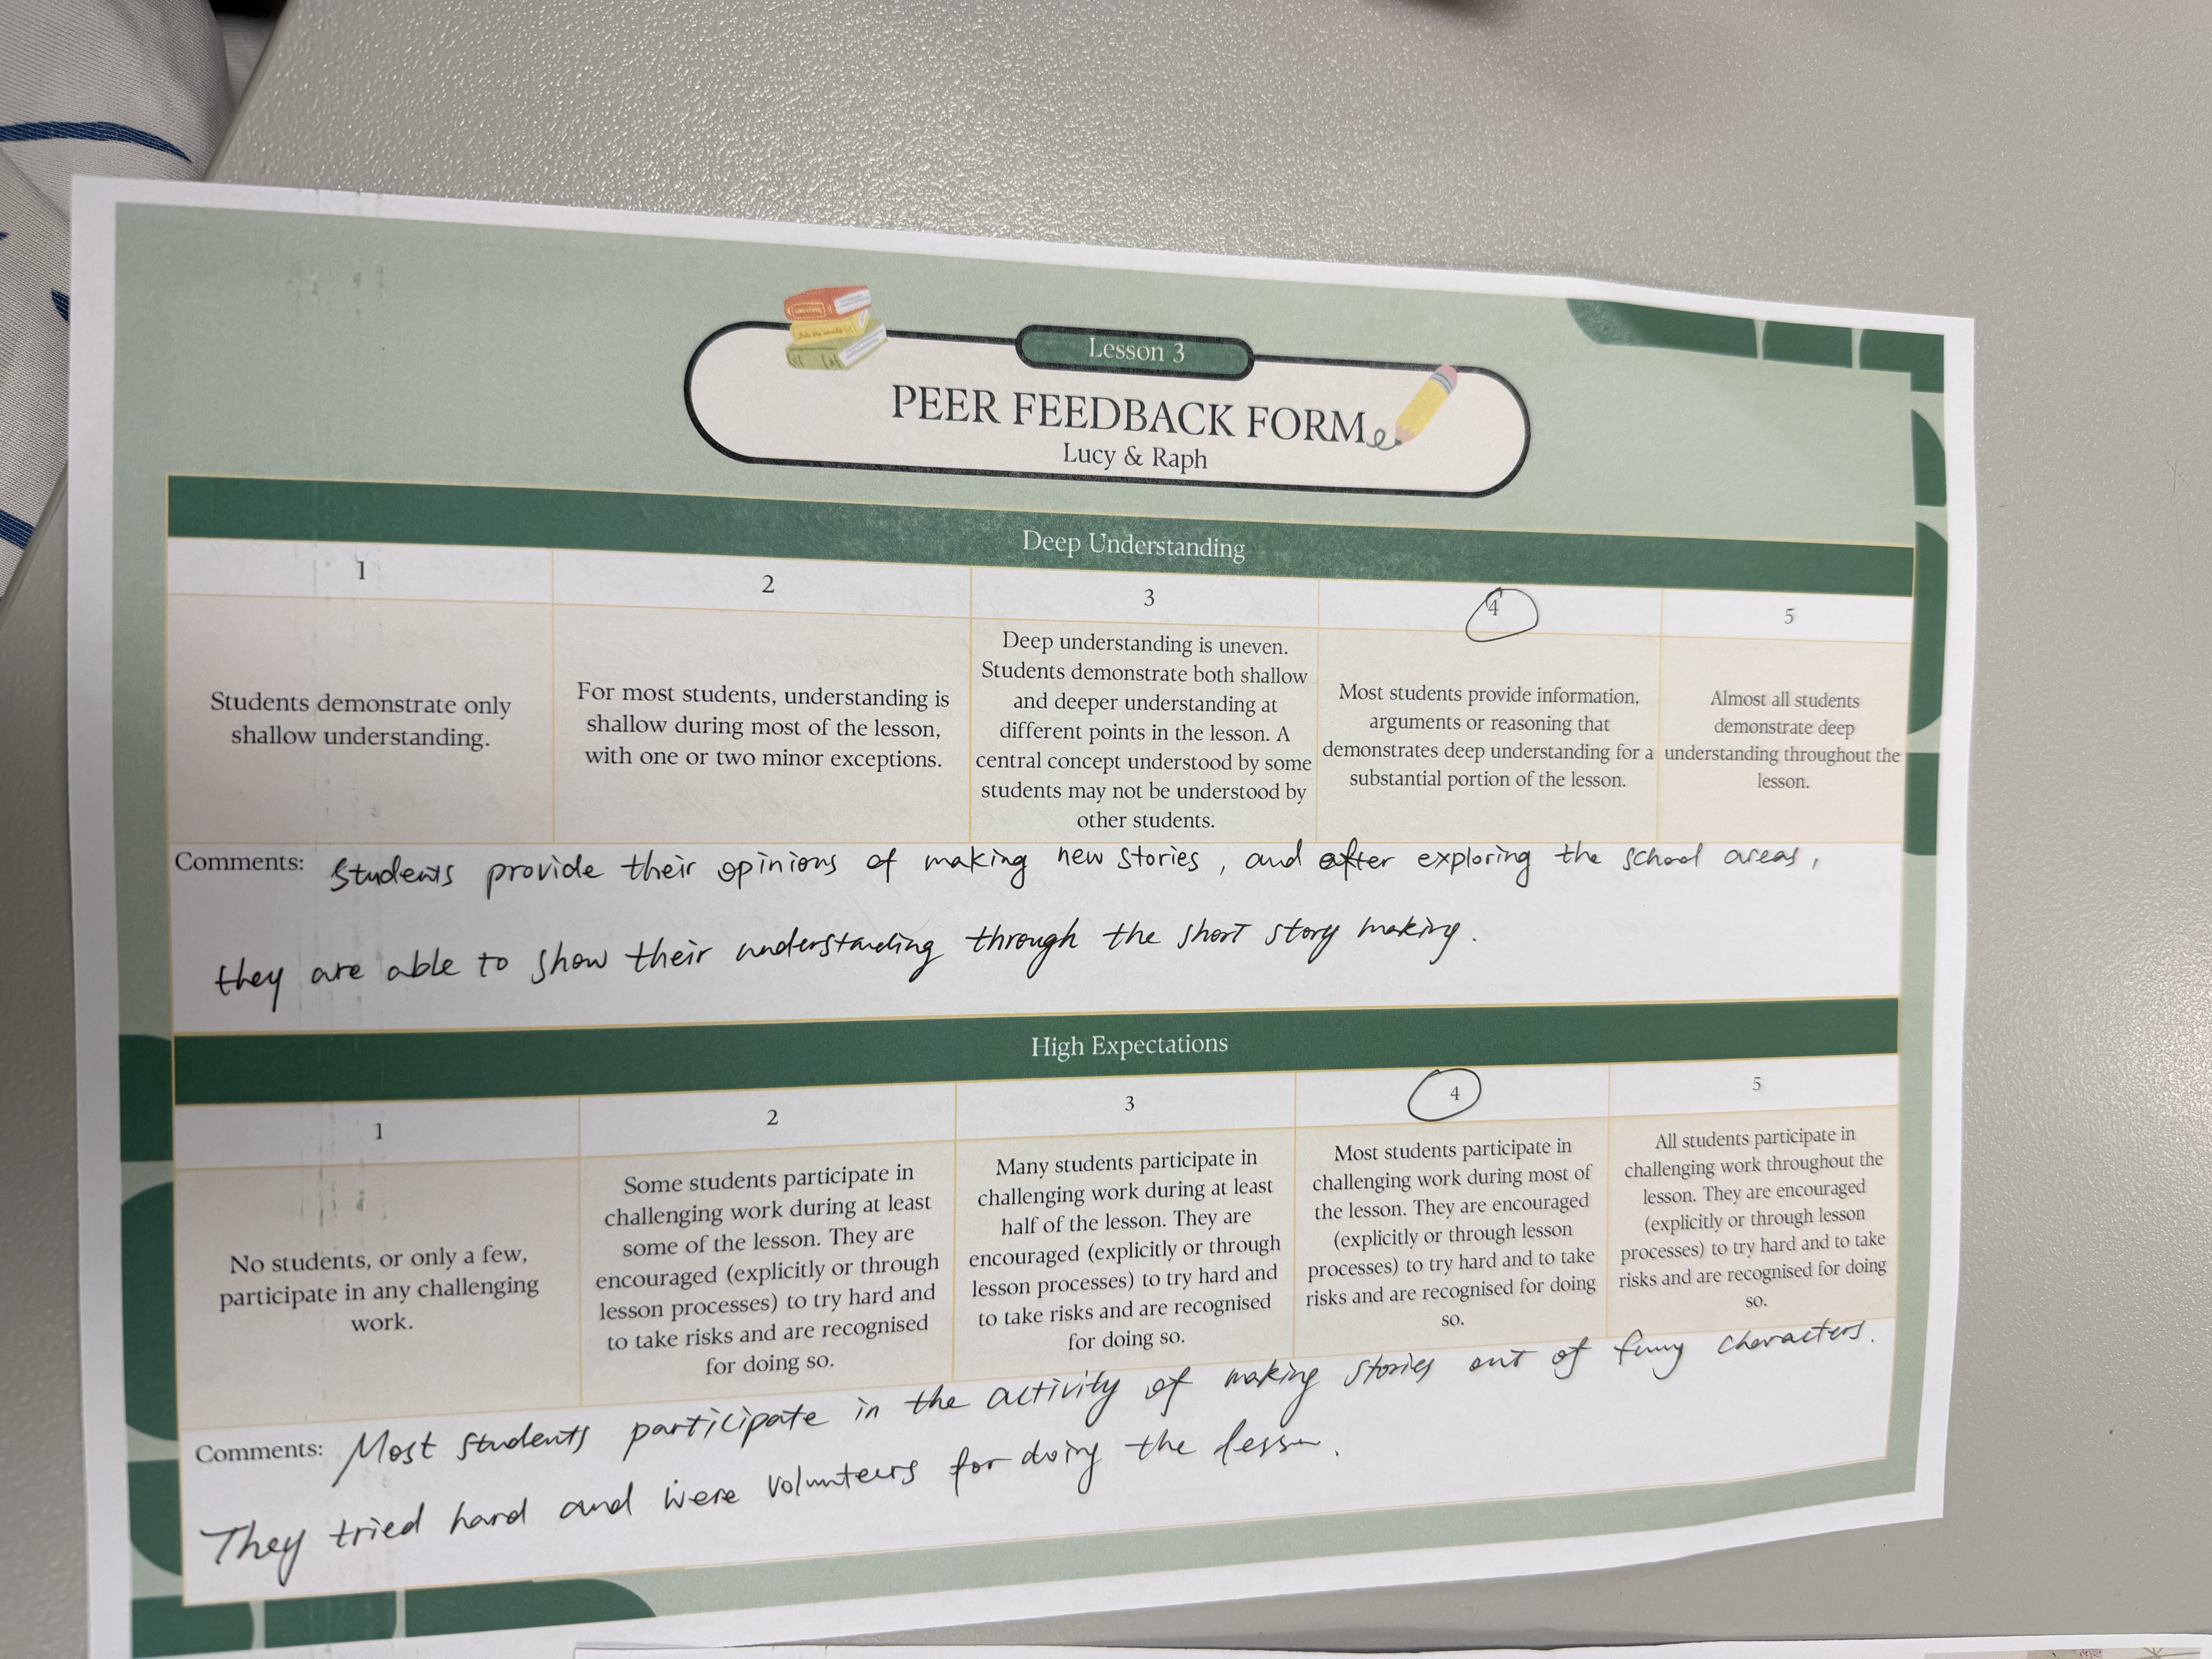 Lesson 3
PEER FEEDBACK FORM
Lucy & Raph
Deep Understanding
1
2
3
4
5
Students demonstrate only
shallow understanding.
For most students, understanding is
shallow during most of the lesson,
with one or two minor exceptions.
Deep understanding is uneven.
Students demonstrate both shallow
and deeper understanding at
different points in the lesson. A
central concept understood by some
students may not be understood by
other students.
Most students provide information,
arguments or reasoning that
demonstrates deep understanding for a
substantial portion of the lesson.
Almost all students
demonstrate deep
understanding throughout the
lesson.
Comments: Students provide their opinions of making new stories, and after exploring the school areas,
they are able to show their understanding through the short story making.
High Expectations
1
2
3
4
5
No students, or only a few,
participate in any challenging
work.
Some students participate in
challenging work during at least
some of the lesson. They are
encouraged (explicitly or through
lesson processes) to try hard and
to take risks and are recognised
for doing so.
Many students participate in
challenging work during at least
half of the lesson. They are
encouraged (explicitly or through
lesson processes) to try hard and
to take risks and are recognised
for doing so.
Most students participate in
challenging work during most of
the lesson. They are encouraged
(explicitly or through lesson
processes) to try hard and to take
risks and are recognised for doing
so.
All students participate in
challenging work throughout the
lesson. They are encouraged
(explicitly or through lesson
processes) to try hard and to take
risks and are recognised for doing
so.
Comments: Most students participate in the activity of making stories out of funny characters.
They tried hard and were volunteers for doing the lesson.